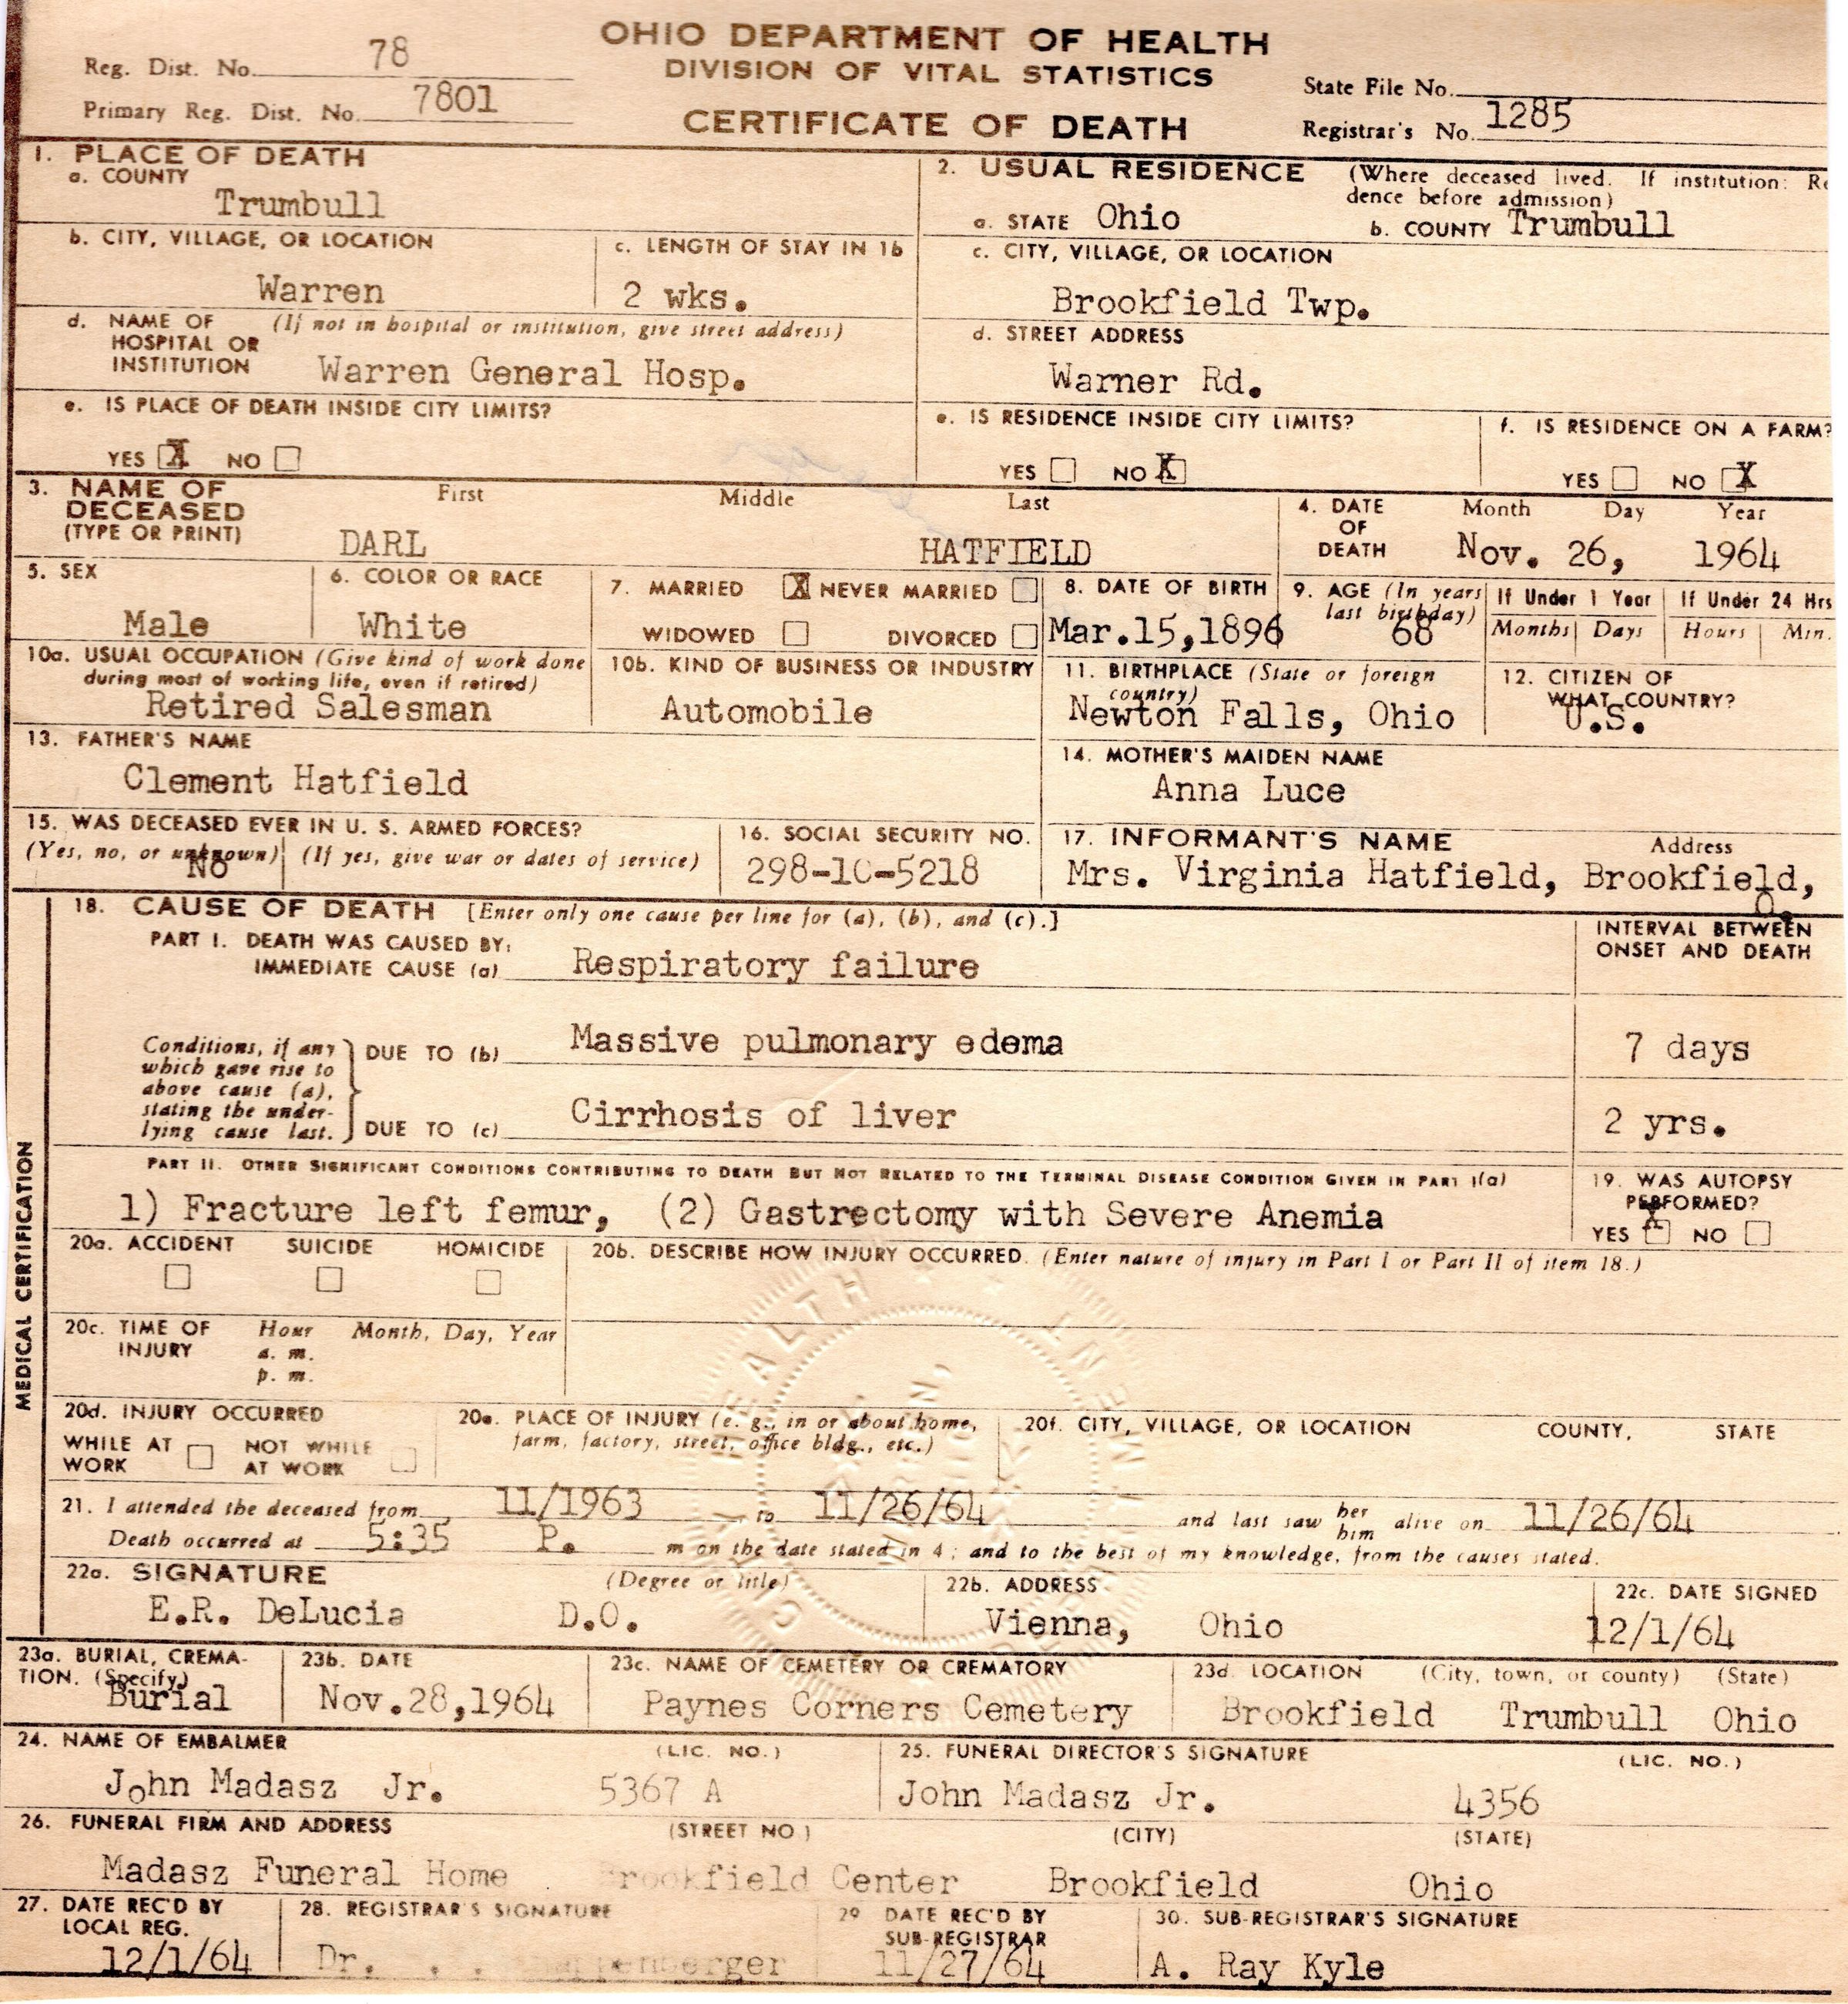 OHIO DEPARTMENT OF HEALTH
DIVISION OF VITAL STATISTICS
CERTIFICATE OF DEATH
Reg. Dist. No. 78
Primary Reg. Dist. No. 7801
State File No.
Registrar's No. 1285
1. PLACE OF DEATH
a. COUNTY
Trumbull
b. CITY, VILLAGE, OR LOCATION
Warren
c. LENGTH OF STAY IN 1b
2 wks.
d. NAME OF HOSPITAL OR INSTITUTION (If not in hospital or institution, give street address)
Warren General Hosp.
e. IS PLACE OF DEATH INSIDE CITY LIMITS?
YES X NO
2. USUAL RESIDENCE (Where deceased lived. If institution: Re
dence before admission)
a. STATE Ohio b. COUNTY Trumbull
c. CITY, VILLAGE, OR LOCATION
Brookfield Twp.
d. STREET ADDRESS
Warner Rd.
e. IS RESIDENCE INSIDE CITY LIMITS?
YES NO X
f. IS RESIDENCE ON A FARM?
YES NO X
3. NAME OF DECEASED (TYPE OR PRINT)
First Middle Last
DARL HATFIELD
4. DATE OF DEATH Month Day Year
Nov. 26, 1964
5. SEX
Male
6. COLOR OR RACE
White
7. MARRIED X NEVER MARRIED
WIDOWED DIVORCED
8. DATE OF BIRTH
Mar.15,1896
9. AGE (In years last birthday)
68
If Under 1 Year
Months Days
If Under 24 Hrs
Hours Min.
10a. USUAL OCCUPATION (Give kind of work done
during most of working life, even if retired)
Retired Salesman
10b. KIND OF BUSINESS OR INDUSTRY
Automobile
11. BIRTHPLACE (State or foreign country)
Newton Falls, Ohio
12. CITIZEN OF WHAT COUNTRY?
U.S.
13. FATHER'S NAME
Clement Hatfield
14. MOTHER'S MAIDEN NAME
Anna Luce
15. WAS DECEASED EVER IN U. S. ARMED FORCES?
(Yes, no, or unknown) (If yes, give war or dates of service)
No
16. SOCIAL SECURITY NO.
298-10-5218
17. INFORMANT'S NAME Address
Mrs. Virginia Hatfield, Brookfield,
O.
MEDICAL CERTIFICATION
18. CAUSE OF DEATH [Enter only one cause per line for (a), (b), and (c).]
INTERVAL BETWEEN ONSET AND DEATH
PART I. DEATH WAS CAUSED BY:
IMMEDIATE CAUSE (a) Respiratory failure
Conditions, if any which gave rise to above cause (a), stating the under- lying cause last.
DUE TO (b) Massive pulmonary edema 7 days
DUE TO (c) Cirrhosis of liver 2 yrs.
PART II. OTHER SIGNIFICANT CONDITIONS CONTRIBUTING TO DEATH BUT NOT RELATED TO THE TERMINAL DISEASE CONDITION GIVEN IN PART I(a)
1) Fracture left femur, (2) Gastrectomy with Severe Anemia
19. WAS AUTOPSY PERFORMED?
YES X NO
20a. ACCIDENT SUICIDE HOMICIDE
20b. DESCRIBE HOW INJURY OCCURRED. (Enter nature of injury in Part I or Part II of item 18.)
20c. TIME OF INJURY Hour Month, Day, Year
a. m.
p. m.
20d. INJURY OCCURRED
WHILE AT WORK NOT WHILE AT WORK
20e. PLACE OF INJURY (e. g., in or about home,
farm, factory, street, office bldg., etc.)
20f. CITY, VILLAGE, OR LOCATION COUNTY, STATE
21. I attended the deceased from 11/1963 to 11/26/64 and last saw her him alive on 11/26/64
Death occurred at 5:35 P. m on the date stated in 4; and to the best of my knowledge, from the causes stated.
22a. SIGNATURE (Degree or title)
E.R. DeLucia D.O.
22b. ADDRESS
Vienna, Ohio
22c. DATE SIGNED
12/1/64
23a. BURIAL, CREMA-
TION. (Specify)
Burial
23b. DATE
Nov.28,1964
23c. NAME OF CEMETERY OR CREMATORY
Paynes Corners Cemetery
23d. LOCATION (City, town, or county) (State)
Brookfield Trumbull Ohio
24. NAME OF EMBALMER (LIC. NO.)
John Madasz Jr. 5367 A
25. FUNERAL DIRECTOR'S SIGNATURE (LIC. NO.)
John Madasz Jr. 4356
26. FUNERAL FIRM AND ADDRESS (STREET NO) (CITY) (STATE)
Madasz Funeral Home Brookfield Center Brookfield Ohio
27. DATE REC'D BY LOCAL REG.
12/1/64
28. REGISTRAR'S SIGNATURE
Dr.
29 DATE REC'D BY SUB-REGISTRAR
11/27/64
30. SUB-REGISTRAR'S SIGNATURE
A. Ray Kyle